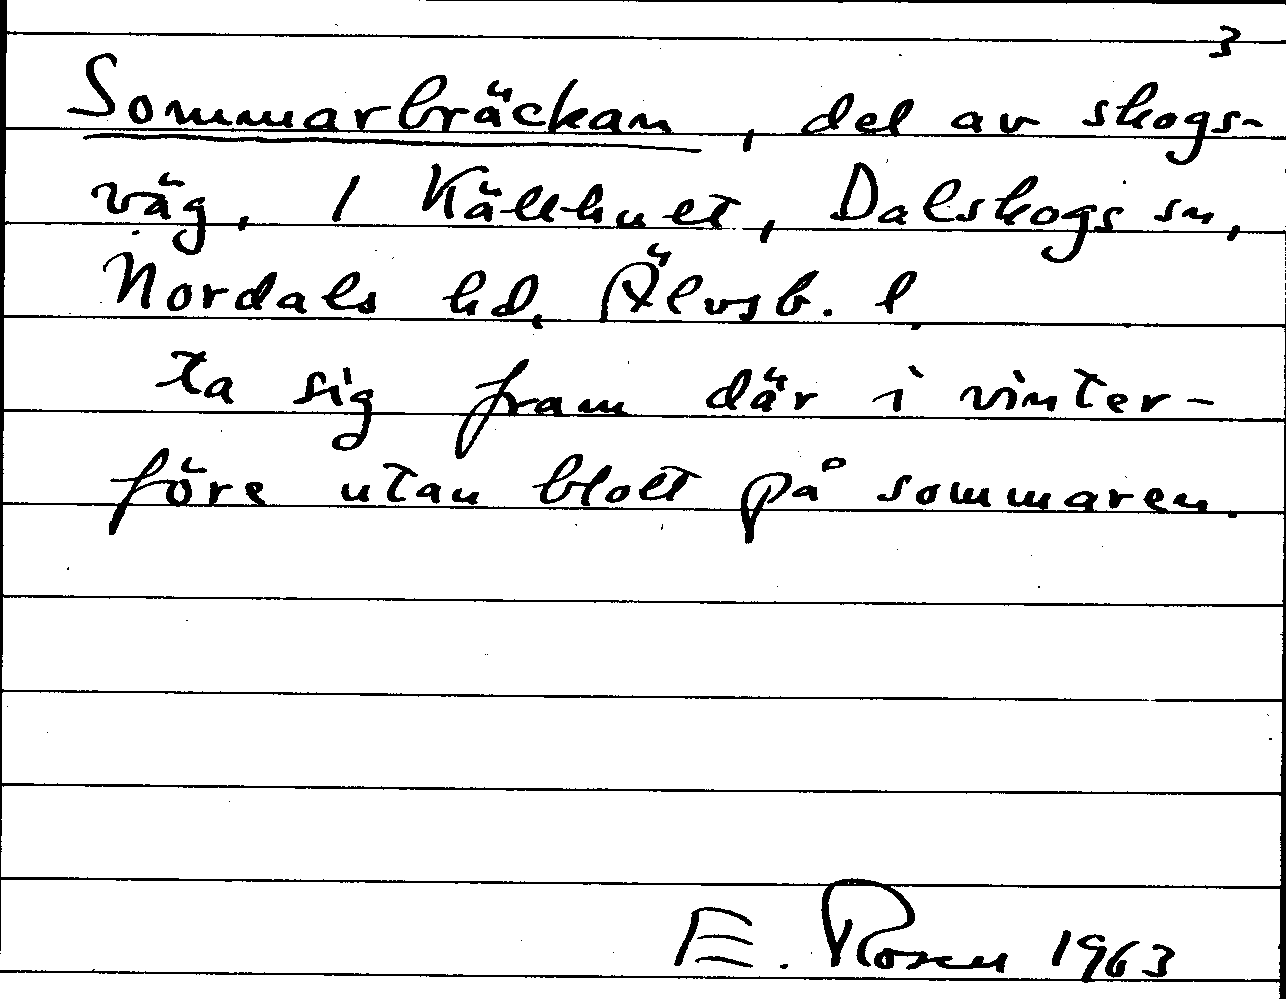 3
Sommarbräckan, del av skogs-
väg, 1 Källhult, Dalskogs sn,
Nordals hd, Älvsb. l.
ta sig fram där i vinter-
före utan blott på sommaren.
E. Rosen 1963